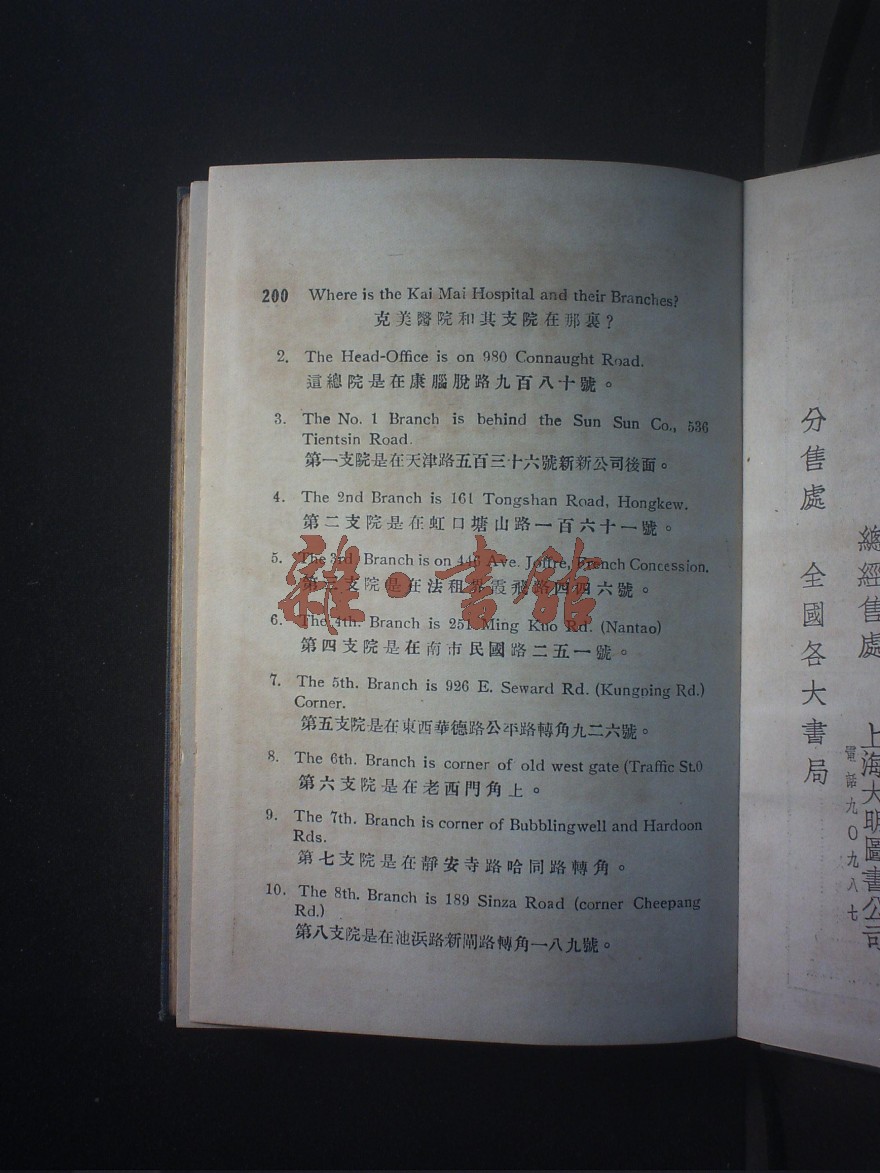 200 Where is the Kai Mai Hospital and their Branches?
克美醫院和其支院在那裏？
2. The Head-Office is on 980 Connaught Road.
這總院是在康腦脫路九百八十號。
3. The No. 1 Branch is behind the Sun Sun Co., 536
Tientsin Road.
第一支院是在天津路五百三十六號新新公司後面。
4. The 2nd Branch is 161 Tongshan Road, Hongkew.
第二支院是在虹口塘山路一百六十一號。
5. The 3rd. Branch is on 446 Ave. Joffre, French Concession.
第三支院是在法租界霞飛路四四六號。
6. The 4th. Branch is 251 Ming Kuo Rd. (Nantao)
第四支院是在南市民國路二五一號。
7. The 5th. Branch is 926 E. Seward Rd. (Kungping Rd.)
Corner.
第五支院是在東西華德路公平路轉角九二六號。
8. The 6th. Branch is corner of old west gate (Traffic St.)
第六支院是在老西門角上。
9. The 7th. Branch is corner of Bubblingwell and Hardoon
Rds.
第七支院是在靜安寺路哈同路轉角。
10. The 8th. Branch is 189 Sinza Road (corner Cheepang
Rd.)
第八支院是在池浜路新閘路轉角一八九號。
雜·書館
總經售處 上海大明圖書公司
電話九〇九八七
分售處 全國各大書局